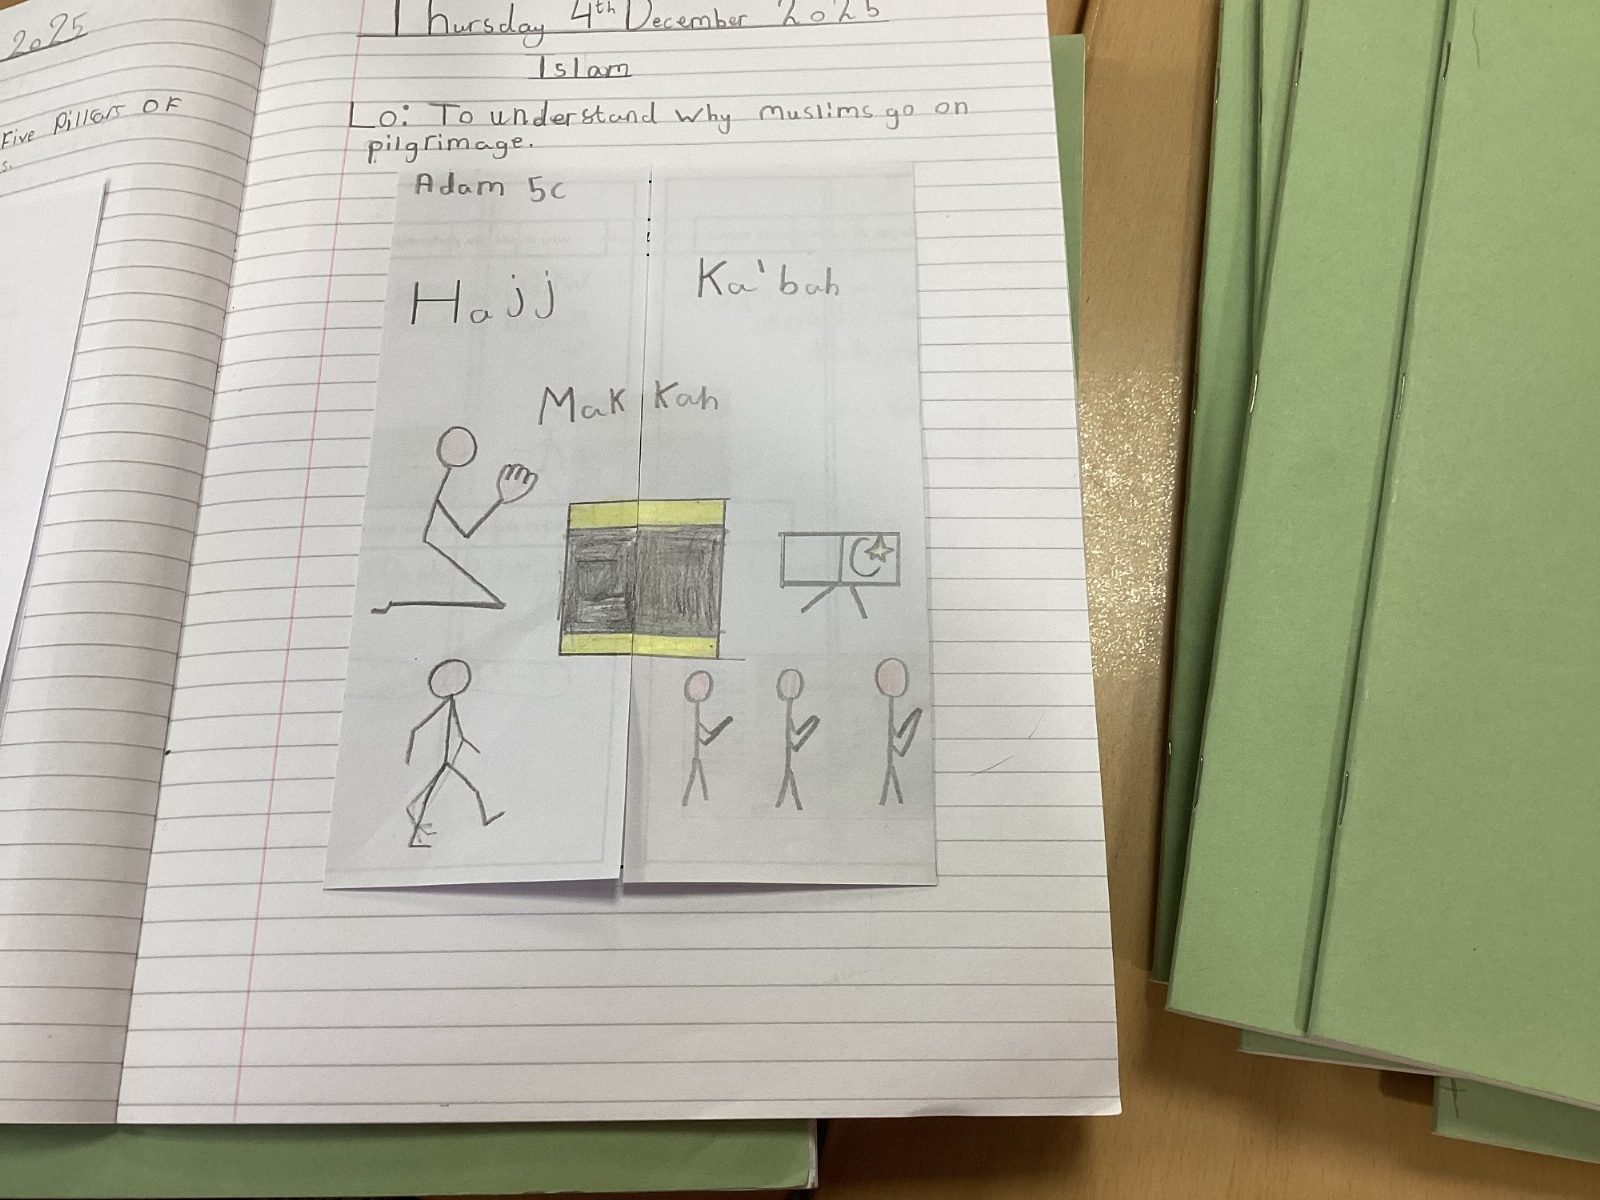 2025
Five Pillars OF
s.
Thursday 4th December 2025
Islam
Lo: To understand why muslims go on
pilgrimage.
Adam 5c
Hajj
Ka'bah
Makkah